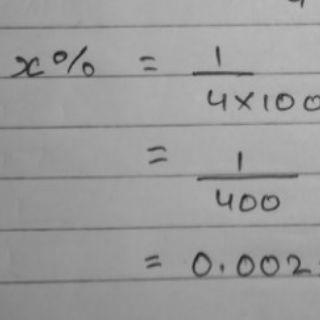 x% = 1
4×100
= 1
400
= 0.002